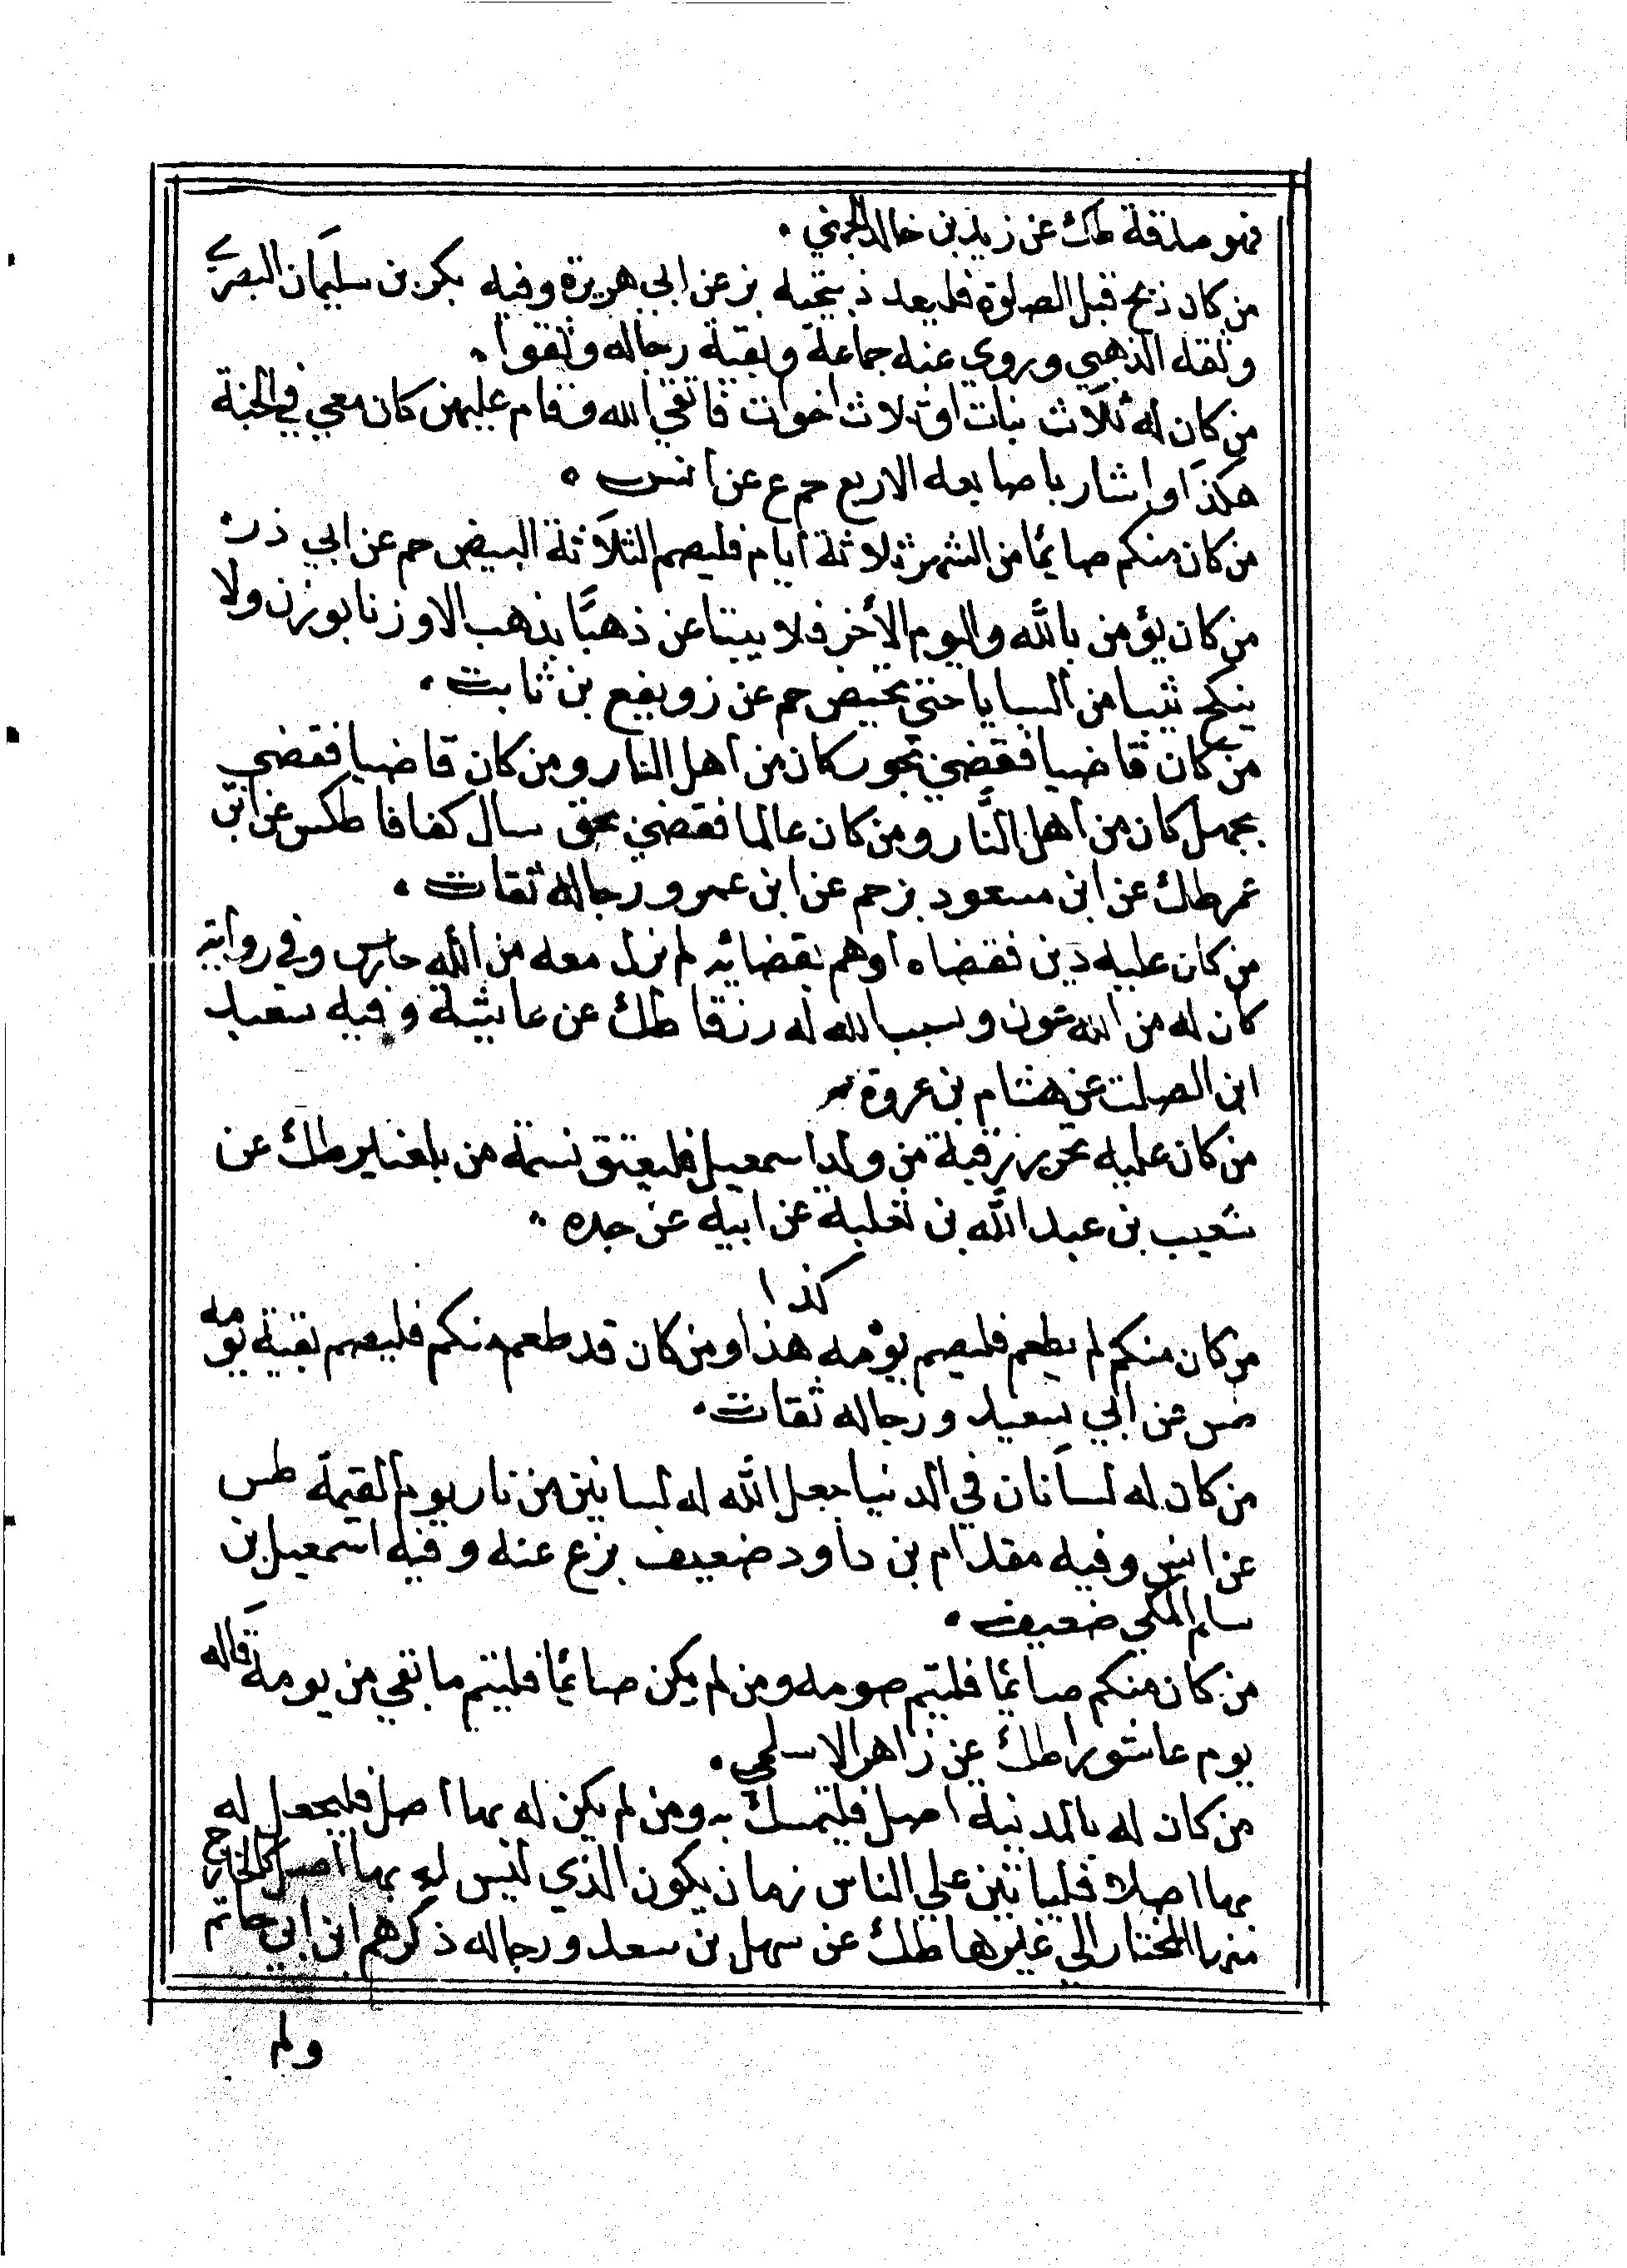 فهو صدقة طك عن زيد بن خالد الجهني .
من كان ذبح قبل الصلوة فليعد ذبيحته بز عن ابي هريرة وفيه بكر بن سليمان البصري
وثقه الذهبي وروي عنه جماعة وبقية رجاله وثقوا .
من كان له ثلاث بنات او ثلاث اخوات فاتقي الله وقام عليهن كان معي في الجنة
هكذا واشار باصابعه الاربع حم ع عن انس ٥
من كان منكم صايمًا من الشهر ثلاثة أيام فليصم الثلاثة البيض حم عن ابي ذر
من كان يؤمن بالله واليوم الأخر فلا يبتاعن ذهبًا بذهب الا وزنا بوزن ولا
ينكح ثيبا من السبايا حتي تحيض حم عن رويفع بن ثابت .
من كان قاضيا فقضي بجور كان من اهل النار ومن كان قاضيا فقضي
بجهل كان من اهل النَّار ومن كان عالما فقضي بحق سال كفافا طكس عن ابن
عمر طك عن ابن مسعود بز حم عن ابن عمر ورجاله ثقات .
من كان عليه دين فقضاه او هم بقضائه لم يزل معه من الله حارس وفي رواية
كان له من الله عون وسبب الله له رزقا طك عن عايشة وفيه سعيد
ابن الصلت عن هشام بن عروة
من كان عليه تحرير رقبة من ولد اسمعيل فليعتق نسمة من بلعنبر طك عن
شعيب بن عبد الله بن ثعلبة عن ابيه عن جده .
كذا
من كان منكم لم يطعم فليصم يومه هذا ومن كان قد طعم منكم فليصم بقية يومه
عن ابي سعيد ورجاله ثقات .
من كان له لسانان في الدنيا جعل الله له لسانين من نار يوم القيمة طس
عن انس وفيه مقدام بن داود ضعيف بز ع عنه وفيه اسمعيل بن
سلم المكي ضعيف .
من كان منكم صائمًا فليتم صومه ومن لم يكن صائمًا فليتم ما بقي من يومه قاله
يوم عاشورا طك عن زاهر الاسلمي .
من كان له بالمدينة اصل فليتمسك به ومن لم يكن له بها اصل فليجعل له
بها اصلا فلياتين علي الناس زمان يكون الذي ليس له بها اصل كالخارج
منها المختار الي غيرها طك عن سهل بن سعد ورجاله ذكرهم ابن ابي حاتم
ولم